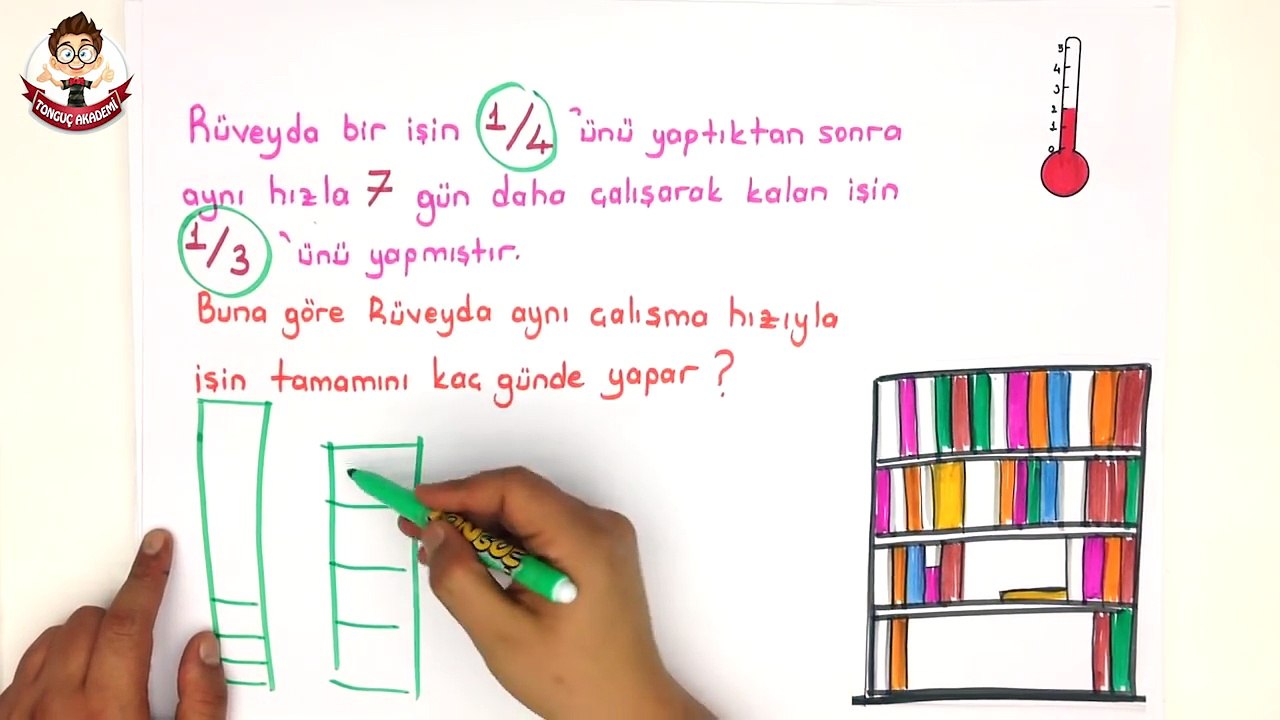 TONGUÇ AKADEMİ
Rüveyda bir işin 1/4 'ünü yaptıktan sonra
aynı hızla 7 gün daha çalışarak kalan işin
1/3 'ünü yapmıştır.
Buna göre Rüveyda aynı çalışma hızıyla
işin tamamını kaç günde yapar ?
5
4
3
2
1
0
TONGUÇ